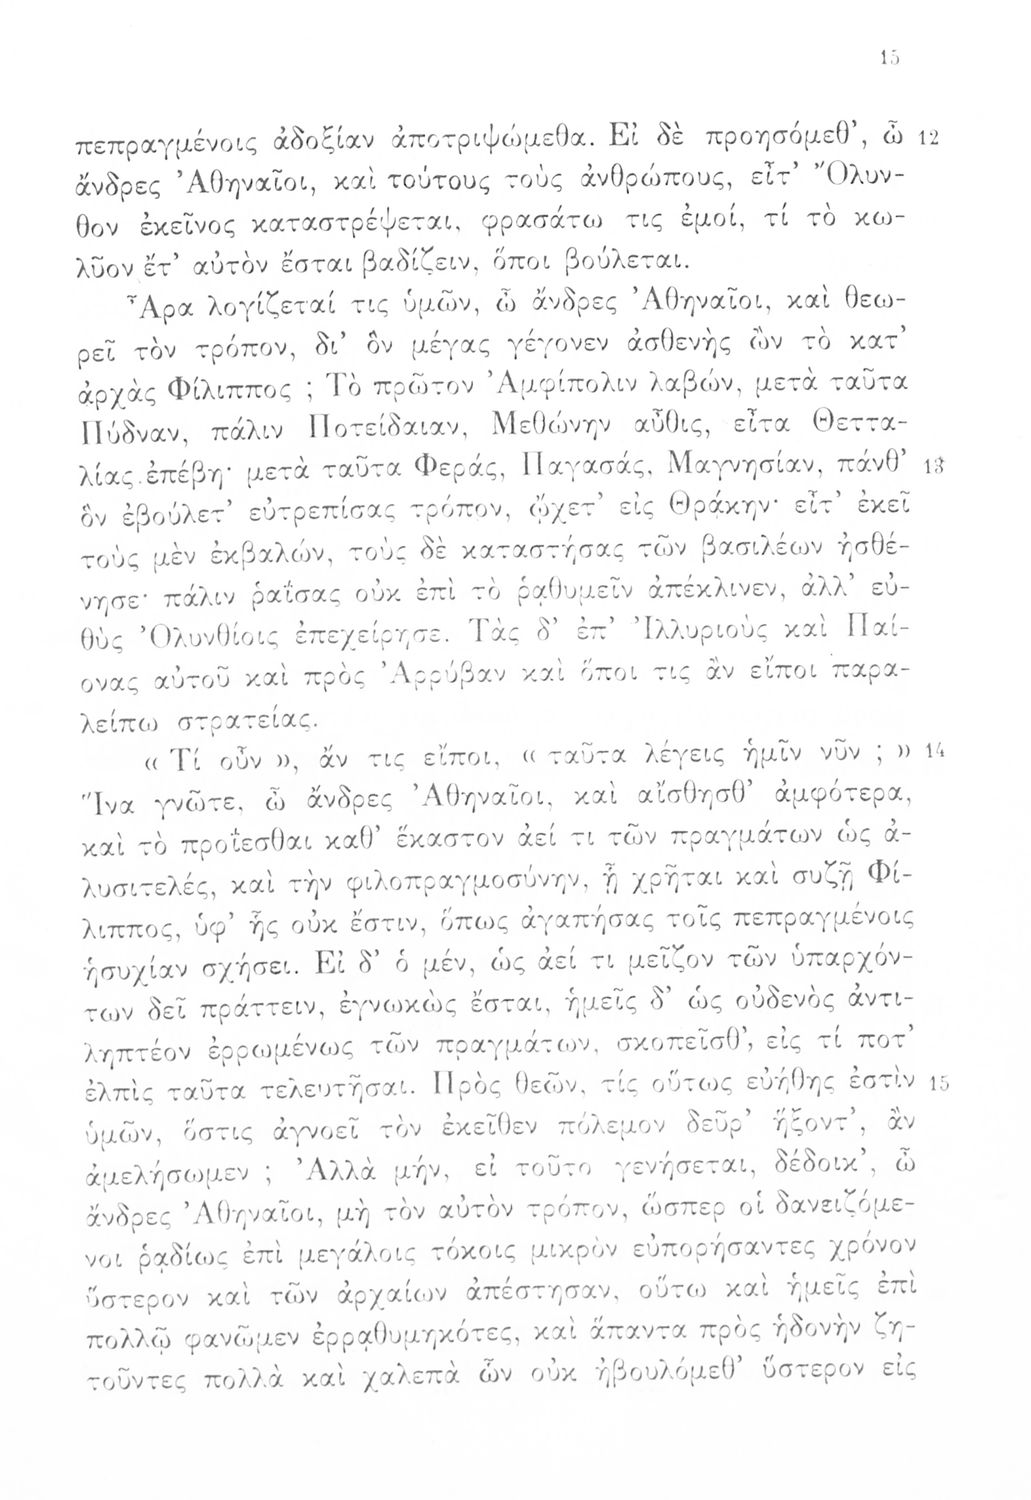 15
πεπραγμένοις ἀδοξίαν ἀποτριψώμεθα. Εἰ δὲ προησόμεθ’, ὦ 12
ἄνδρες Ἀθηναῖοι, καὶ τούτους τοὺς ἀνθρώπους, εἶτ’ Ὄλυν-
θον ἐκεῖνος καταστρέψεται, φρασάτω τις ἐμοί, τί τὸ κω-
λῦον ἔτ’ αὐτὸν ἔσται βαδίζειν, ὅποι βούλεται.
Ἆρα λογίζεταί τις ὑμῶν, ὦ ἄνδρες Ἀθηναῖοι, καὶ θεω-
ρεῖ τὸν τρόπον, δι’ ὃν μέγας γέγονεν ἀσθενὴς ὢν τὸ κατ’
ἀρχὰς Φίλιππος ; Τὸ πρῶτον Ἀμφίπολιν λαβών, μετὰ ταῦτα
Πύδναν, πάλιν Ποτείδαιαν, Μεθώνην αὖθις, εἶτα Θεττα-
λίας ἐπέβη· μετὰ ταῦτα Φεράς, Παγασάς, Μαγνησίαν, πάνθ’ 13
ὃν ἐβούλετ’ εὐτρεπίσας τρόπον, ᾤχετ’ εἰς Θρᾴκην· εἶτ’ ἐκεῖ
τοὺς μὲν ἐκβαλών, τοὺς δὲ καταστήσας τῶν βασιλέων ἠσθέ-
νησε· πάλιν ῥαΐσας οὐκ ἐπὶ τὸ ῥᾳθυμεῖν ἀπέκλινεν, ἀλλ’ εὐ-
θὺς Ὀλυνθίοις ἐπεχείρησε. Τὰς δ’ ἐπ’ Ἰλλυριοὺς καὶ Παί-
ονας αὐτοῦ καὶ πρὸς Ἀρρύβαν καὶ ὅποι τις ἂν εἴποι παρα-
λείπω στρατείας.
« Τί οὖν », ἄν τις εἴποι, « ταῦτα λέγεις ἡμῖν νῦν ; » 14
Ἵνα γνῶτε, ὦ ἄνδρες Ἀθηναῖοι, καὶ αἴσθησθ’ ἀμφότερα,
καὶ τὸ προΐεσθαι καθ’ ἕκαστον ἀεί τι τῶν πραγμάτων ὡς ἀ-
λυσιτελές, καὶ τὴν φιλοπραγμοσύνην, ᾗ χρῆται καὶ συζῇ Φί-
λιππος, ὑφ’ ἧς οὐκ ἔστιν, ὅπως ἀγαπήσας τοῖς πεπραγμένοις
ἡσυχίαν σχήσει. Εἰ δ’ ὁ μέν, ὡς ἀεί τι μεῖζον τῶν ὑπαρχόν-
των δεῖ πράττειν, ἐγνωκὼς ἔσται, ἡμεῖς δ’ ὡς οὐδενὸς ἀντι-
ληπτέον ἐρρωμένως τῶν πραγμάτων, σκοπεῖσθ’, εἰς τί ποτ’
ἐλπὶς ταῦτα τελευτῆσαι. Πρὸς θεῶν, τίς οὕτως εὐήθης ἐστὶν 15
ὑμῶν, ὅστις ἀγνοεῖ τὸν ἐκεῖθεν πόλεμον δεῦρ’ ἥξοντ’, ἂν
ἀμελήσωμεν ; Ἀλλὰ μήν, εἰ τοῦτο γενήσεται, δέδοικ’, ὦ
ἄνδρες Ἀθηναῖοι, μὴ τὸν αὐτὸν τρόπον, ὥσπερ οἱ δανειζόμε-
νοι ῥᾳδίως ἐπὶ μεγάλοις τόκοις μικρὸν εὐπορήσαντες χρόνον
ὕστερον καὶ τῶν ἀρχαίων ἀπέστησαν, οὕτω καὶ ἡμεῖς ἐπὶ
πολλῷ φανῶμεν ἐρρᾳθυμηκότες, καὶ ἅπαντα πρὸς ἡδονὴν ζη-
τοῦντες πολλὰ καὶ χαλεπὰ ὧν οὐκ ἠβουλόμεθ’ ὕστερον εἰς